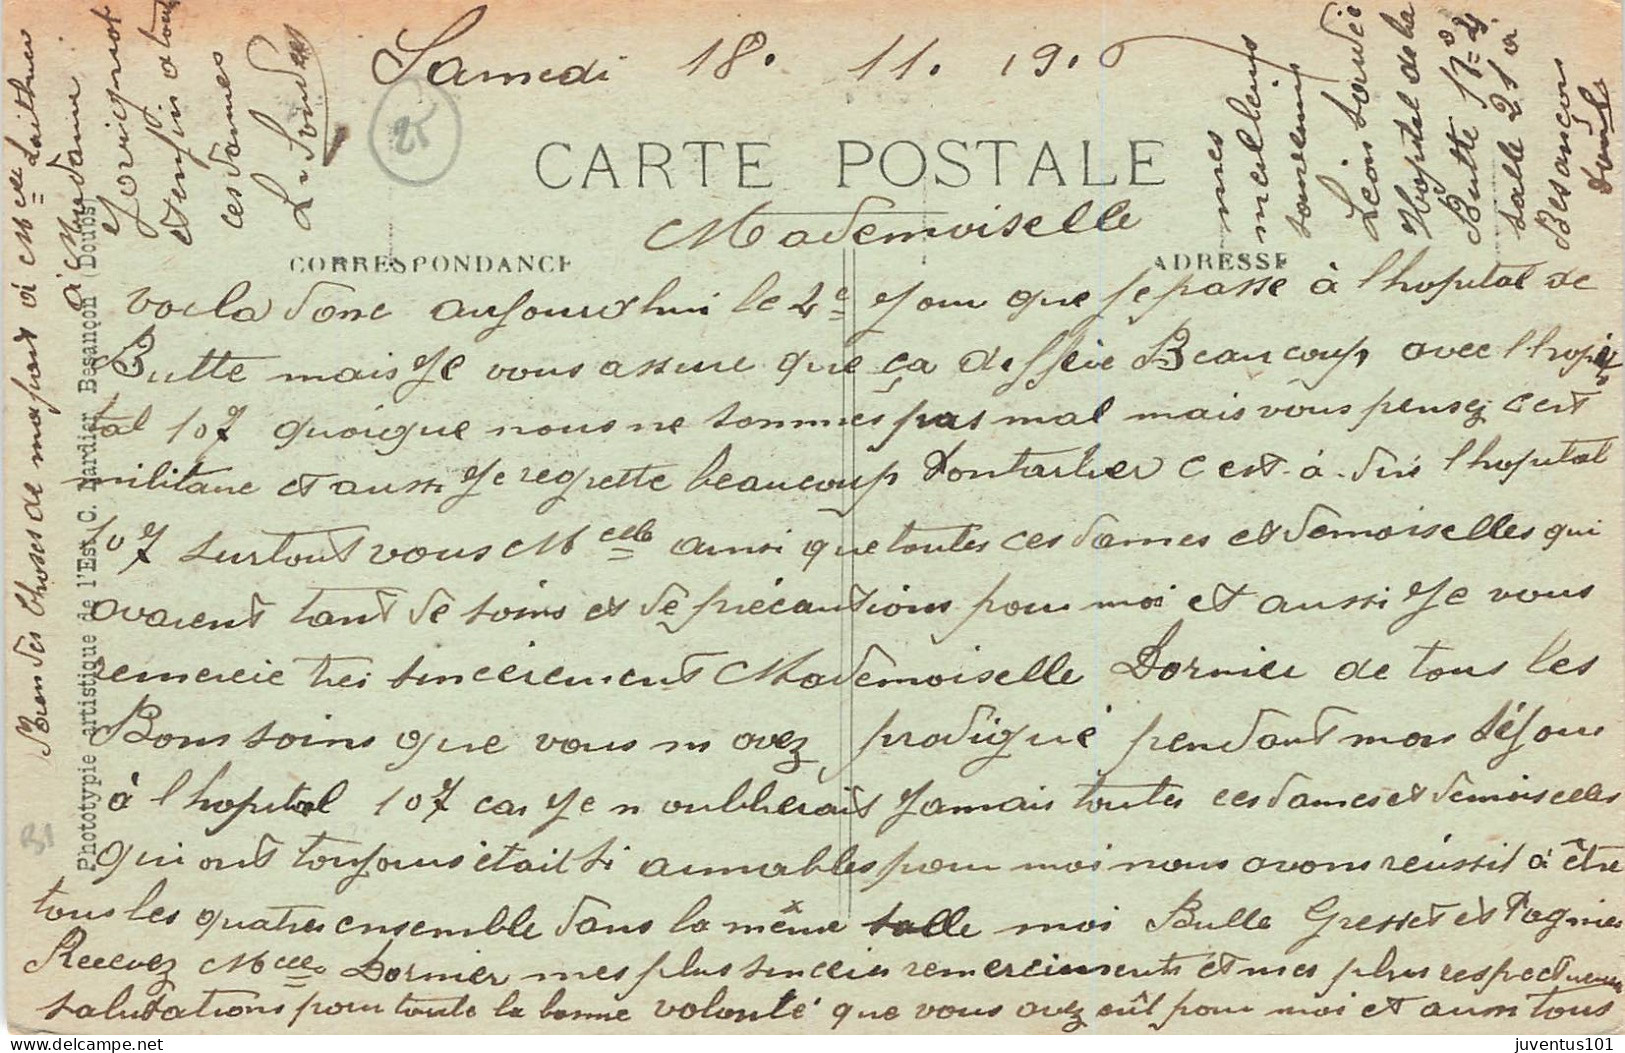 Samedi 18. 11. 19.
25
CARTE POSTALE
CORRESPONDANCE
ADRESSE
Mademoiselle
voila donc aujourdhui le 4e jour que je passe à l hopital de
Butte mais je vous assure que ça differe Beaucoup avec l hopi
tal 107 quoique nous ne sommes pas mal mais vous pensez c est
militaire et aussi je regrette beaucoup Pontarlier c est à dire l hopital
107 surtout vous Melle ainsi que toutes ces dames et demoiselles qui
avaient tant de soins et de précautions pour moi et aussi je vous
remercie tres sincèrement Mademoiselle Dornier de tous les
Bons soins que vous m avez prodigué pendant mon séjour
à l hopital 107 car je n oublierais jamais toutes ces dames et demoiselles
qui ont toujours était si aimables pour moi nous avons réussit à être
tous les quatres ensemble dans la même salle moi Bulle Gresset et Pagnier
Recevez Melle Dornier mes plus sincères remerciements et mes plus respectueuses
salutations pour toute la bonne volonté que vous avez eût pour moi et aussi tous
mes
meilleurs
souvenirs
Léon
Hopital de la
Butte
salle 21 à
Besançon
Doubs
Bien des choses de ma part à Melle
à Madame
et enfin a tout
ces dames
Photototypie artistique de l'Est C. Lardier Besançon (Doubs)
juventus101